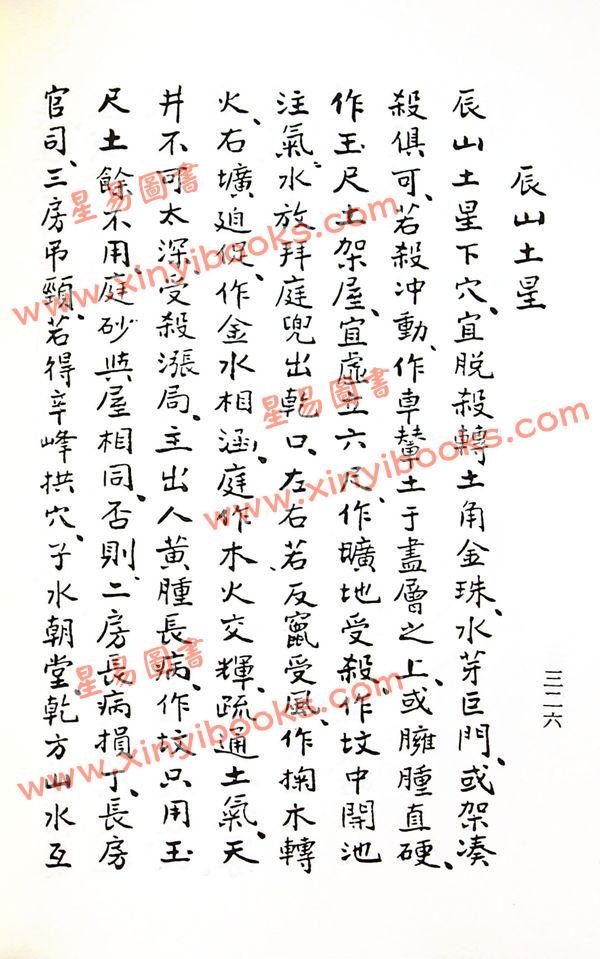 辰山土星
辰山土星下穴、宜脫殺轉土角金珠、水芽巨門、或架湊
殺俱可、若殺冲動、作車輦土于盡層之上、或臃腫直硬、
作玉尺土架屋、宜虛立六尺、作壙地受殺、作坟中開池
注氣、水放拜庭兜出乾口、左右若反竄受風、作掬木轉
火、右壙廹促、作金水相涵、庭作木火交輝、疏通土氣、天
井不可太深、受殺漲局、主出人黄腫長病、作坟只用玉
尺土餘不用、庭砂與屋相同、否則、二房長病損丁、長房
官司、三房吊頸、若得辛峰拱穴、子水朝堂、乾方山水互
三二六
星易圖書
www.xinyibooks.com
星易圖書
www.xinyibooks.com
星易圖書
www.xinyibooks.com